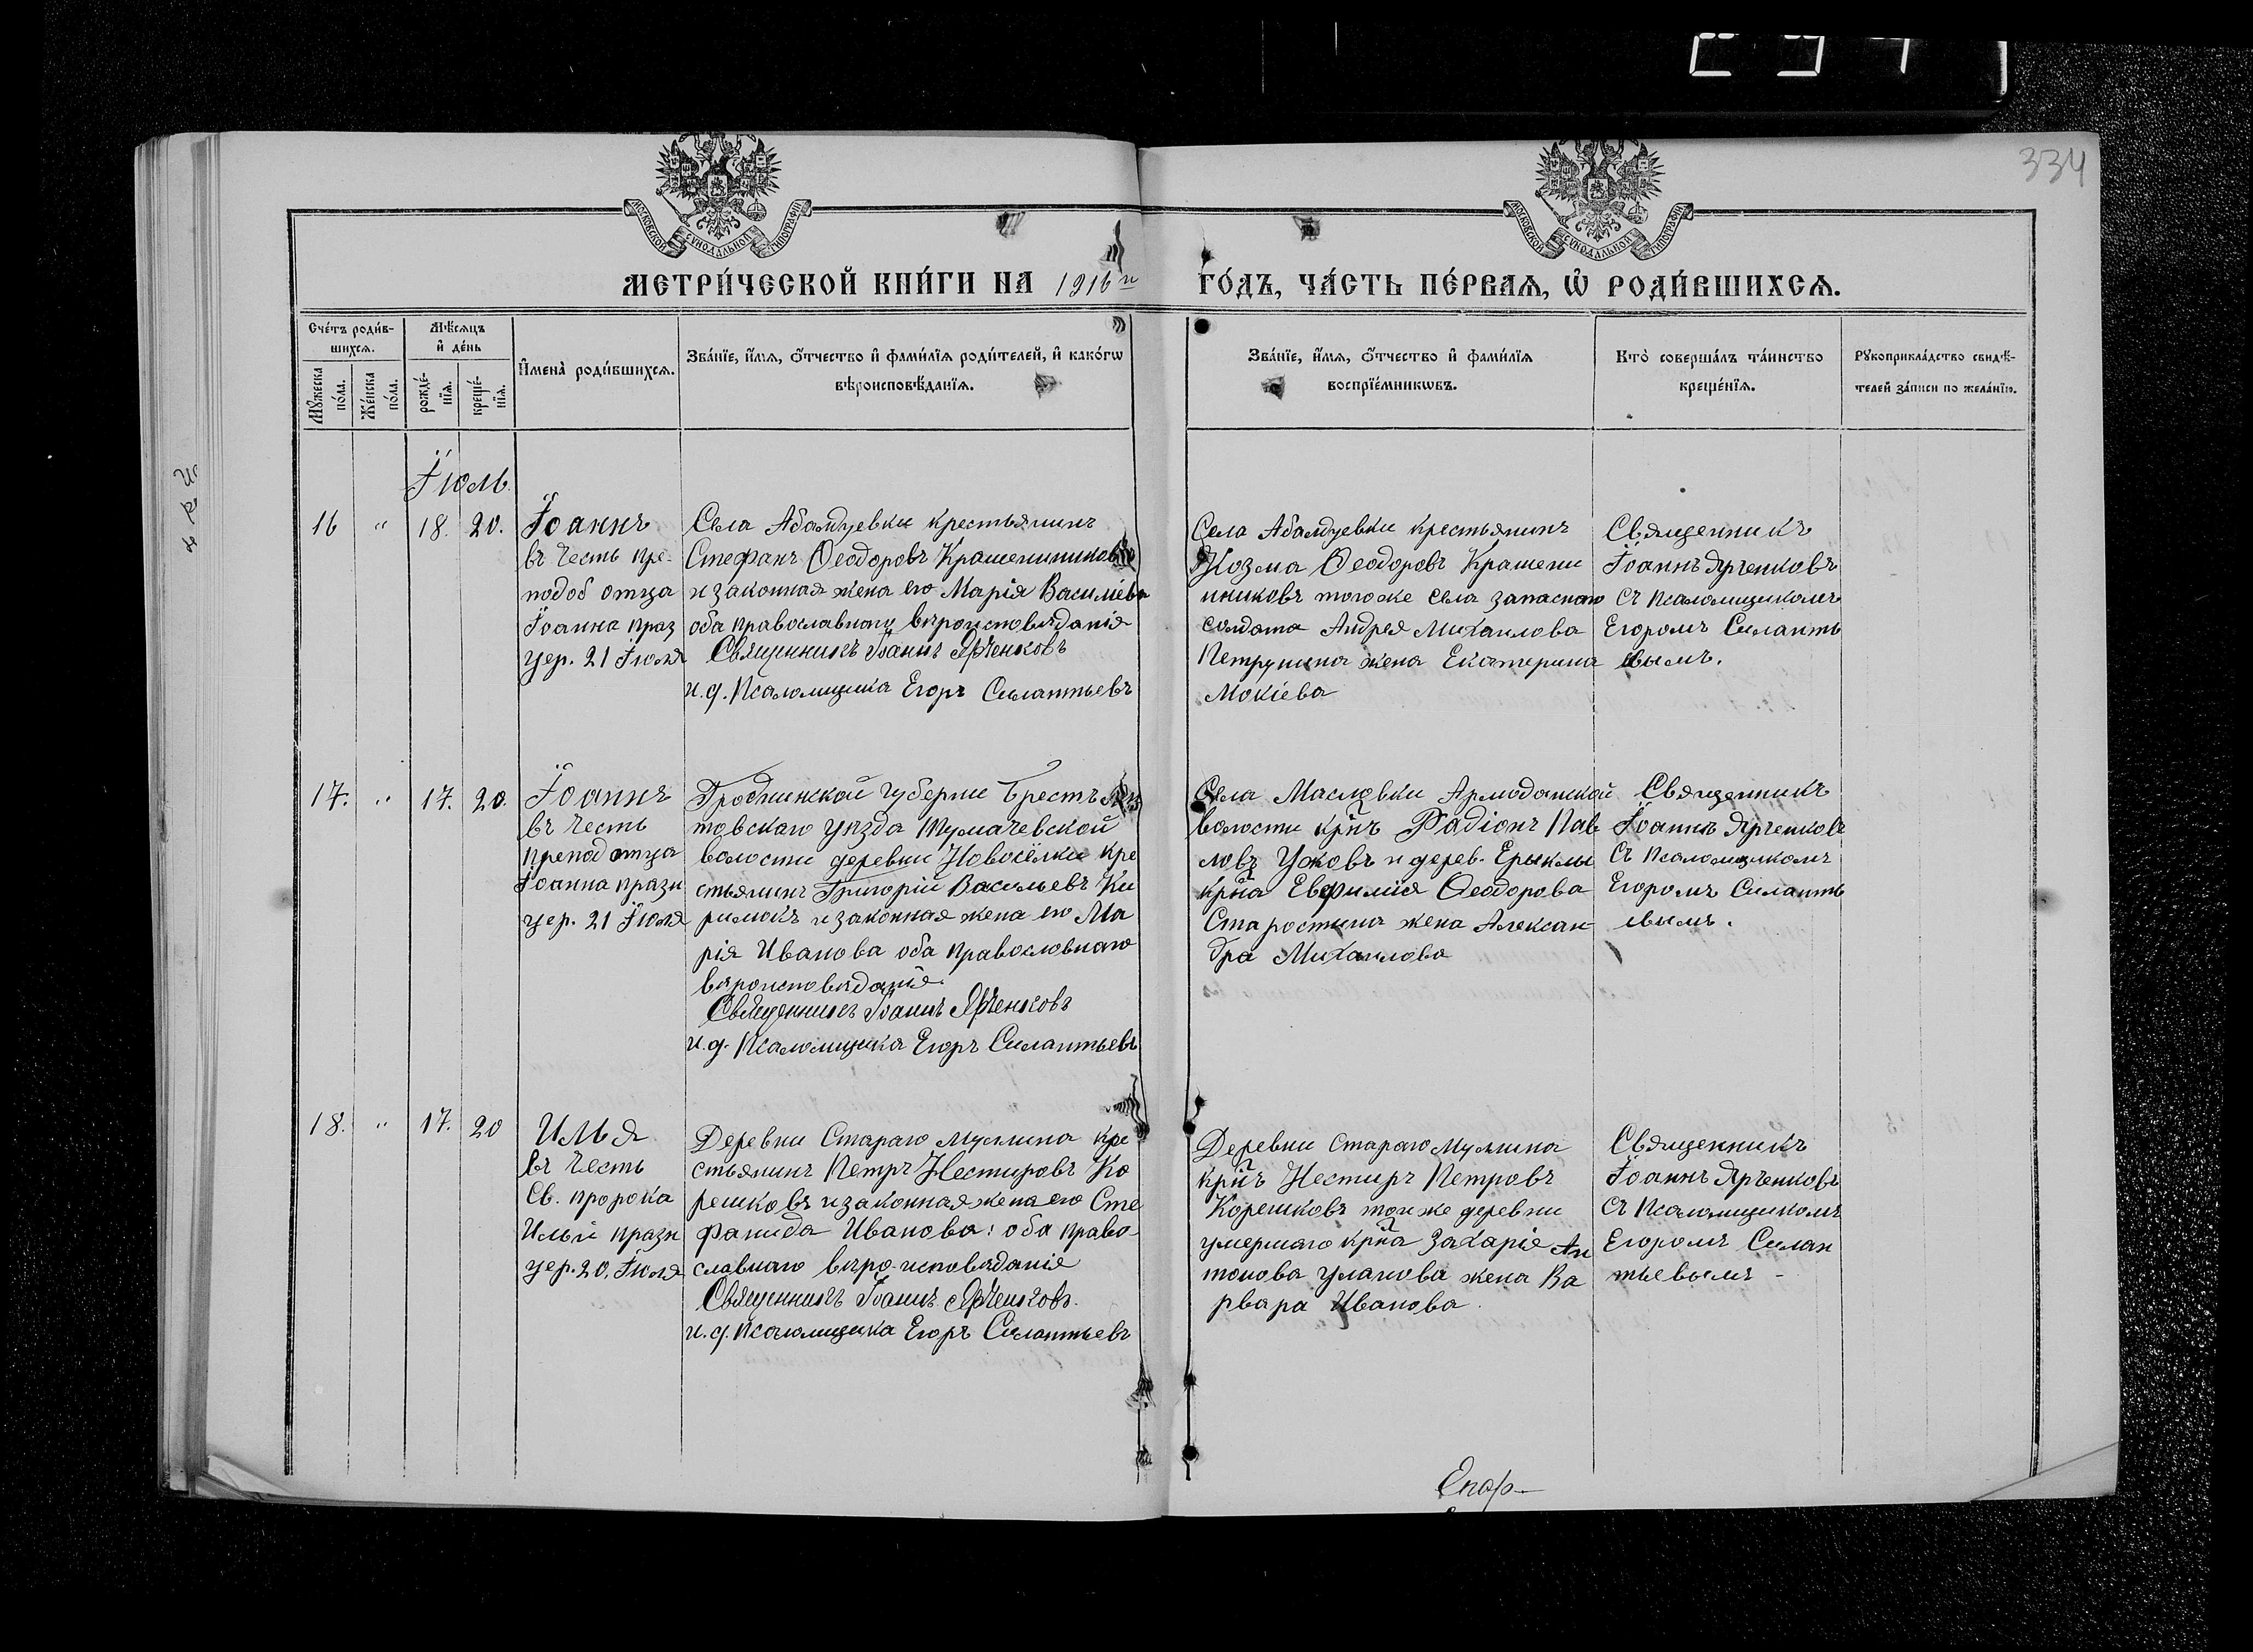 334
МОСКОВСКОЙ СѴНОДАЛЬНОЙ ТИПОГРАФІИ
МОСКОВСКОЙ СѴНОДАЛЬНОЙ ТИПОГРАФІИ
МЕТРИ́ЧЕСКОЙ КНИ́ГИ НА 1916й ГО́ДЪ, ЧА́СТЬ ПЕ́РВАѦ, Ѡ҆ РОДИ́ВШИХСѦ.
Сче́тъ роди́в-
шихсѧ.
Мѣ́сѧцъ
и҆ де́нь
Мꙋ́жеска
по́ла.
Же́нска
по́ла.
рожде́-
нїѧ.
креще́-
нїѧ.
И҆мена̀ роди́вшихсѧ.
Зва́нїе, и҆́мѧ, ѻ҆́тчество и҆ фами́лїѧ роди́телей, и҆ како́гѡ
вѣроисповѣ́данїѧ.
Зва́нїе, и҆́мѧ, ѻ҆́тчество и҆ фами́лїѧ
воспрїе́мникѡвъ.
Кто̀ соверша́лъ та́инство
креще́нїѧ.
Рꙋкоприкла́дство свидѣ́-
телей за́писи по жела́нїю.
Іюль
16 " 18. 20.
Іоаннъ
въ честь пре-
подоб отца
Іоанна праз
цер. 21 Іюля
Села Абамдуевки крестьянинъ
Стефанъ Ѳеодоровъ Крашенинниковъ
и законная жена его Марія Василіева
оба православнаго вѣроисповѣданія
Священникъ Іоаннъ Ярченковъ
и. д. Псаломщика Егоръ Силантьевъ
Села Абамдуевки крестьянинъ
Козма Ѳеодоровъ Крашени
нниковъ тогоже села запаснаго
солдата Андрея Михаилова
Петрунина жена Екатерина
Мокіева
Священникъ
Іоаннъ Ярченковъ
съ Псаломщикомъ
Егоромъ Силанть
евымъ.
17. " 17. 20.
Іоаннъ
въ честь
препод отца
Іоанна празн
цер. 21 Іюля
Гродненской губерніи Брестъ Ли
товскаго уѣзда
волости деревни Новосёлки кре
стьянинъ Григорій Васильевъ Ки
римокъ и законная жена его Ма
рія Иванова оба православнаго
вѣроисповѣданія.
Священникъ Іоаннъ Ярченковъ
и. д. Псаломщика Егоръ Силантьевъ
Села Масловки Армоданской
волости крнъ Радіонъ Пав
ловъ Ужовъ и дерев. Ерыклы
крна Евфимія Ѳеодорова
Старостина жена Алексан
дра Михаилова
Священникъ
Іоаннъ Ярченковъ
съ Псаломщикомъ
Егоромъ Силанть
евымъ.
18. " 17. 20
Илья
въ честь
Св. пророка
Ильи празн
цер. 20. Іюля
Деревни Стараго Муллина кре
стьянинъ Петръ Нестировъ Ко
решковъ и законная жена его Сте
фанида Иванова: оба право-
славнаго вѣро-исповѣданія
Священникъ Іоаннъ Ярченковъ.
и. д. Псаломщика Егоръ Силантьевъ
Деревни Стараго Муллина
крнъ Нестиръ Петровъ
Корешковъ тойже деревни
умершаго крна Захарія Ан
тонова Уланова жена Ва
рвара Иванова.
Священникъ
Іоаннъ Ярченковъ
съ Псаломщикомъ
Егоромъ Силан
тьевымъ -
Епар-